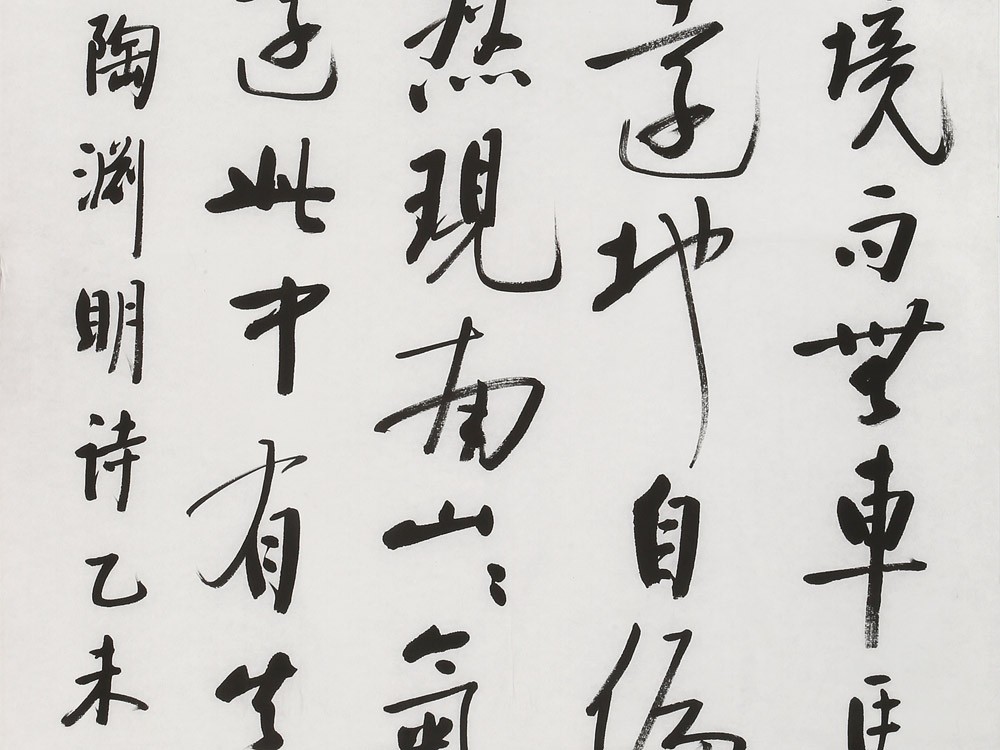 境而無車馬
遠地自偏
然現南山々氣
還此中有真
陶渊明诗乙未